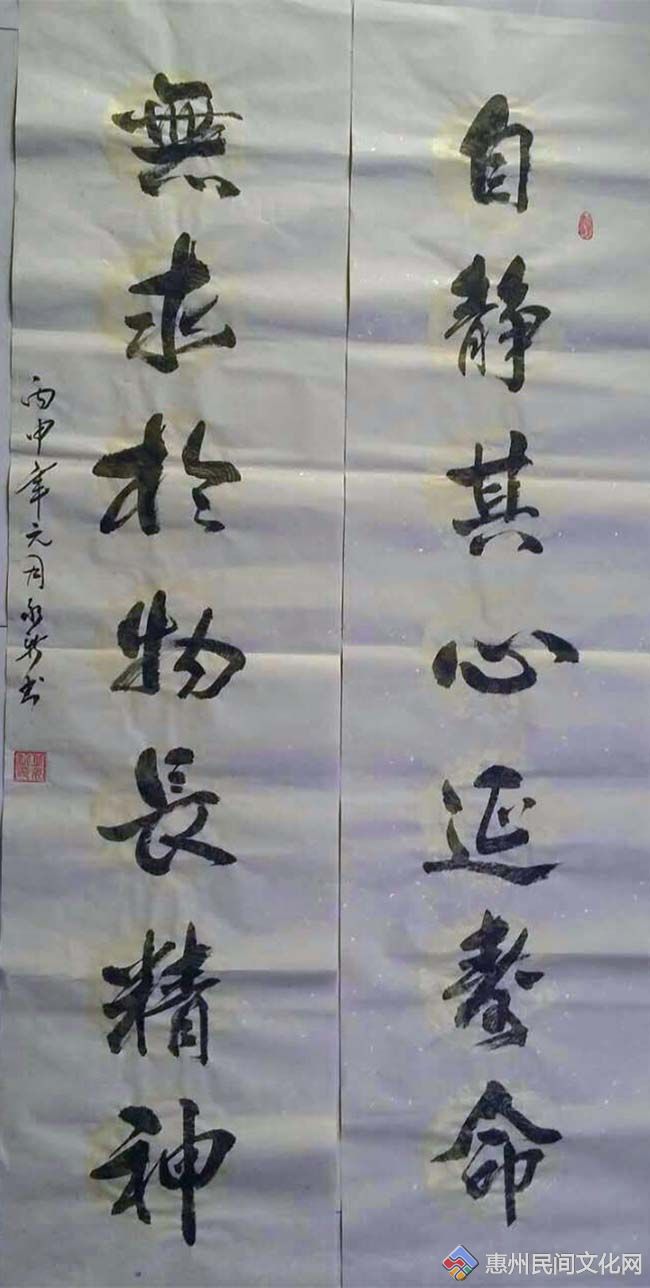 自靜其心延壽命
無求於物長精神
丙申年元月永新书
惠州民间文化网